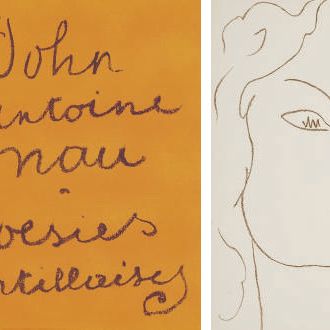 John
antoine
nau
oesies
ntillaises